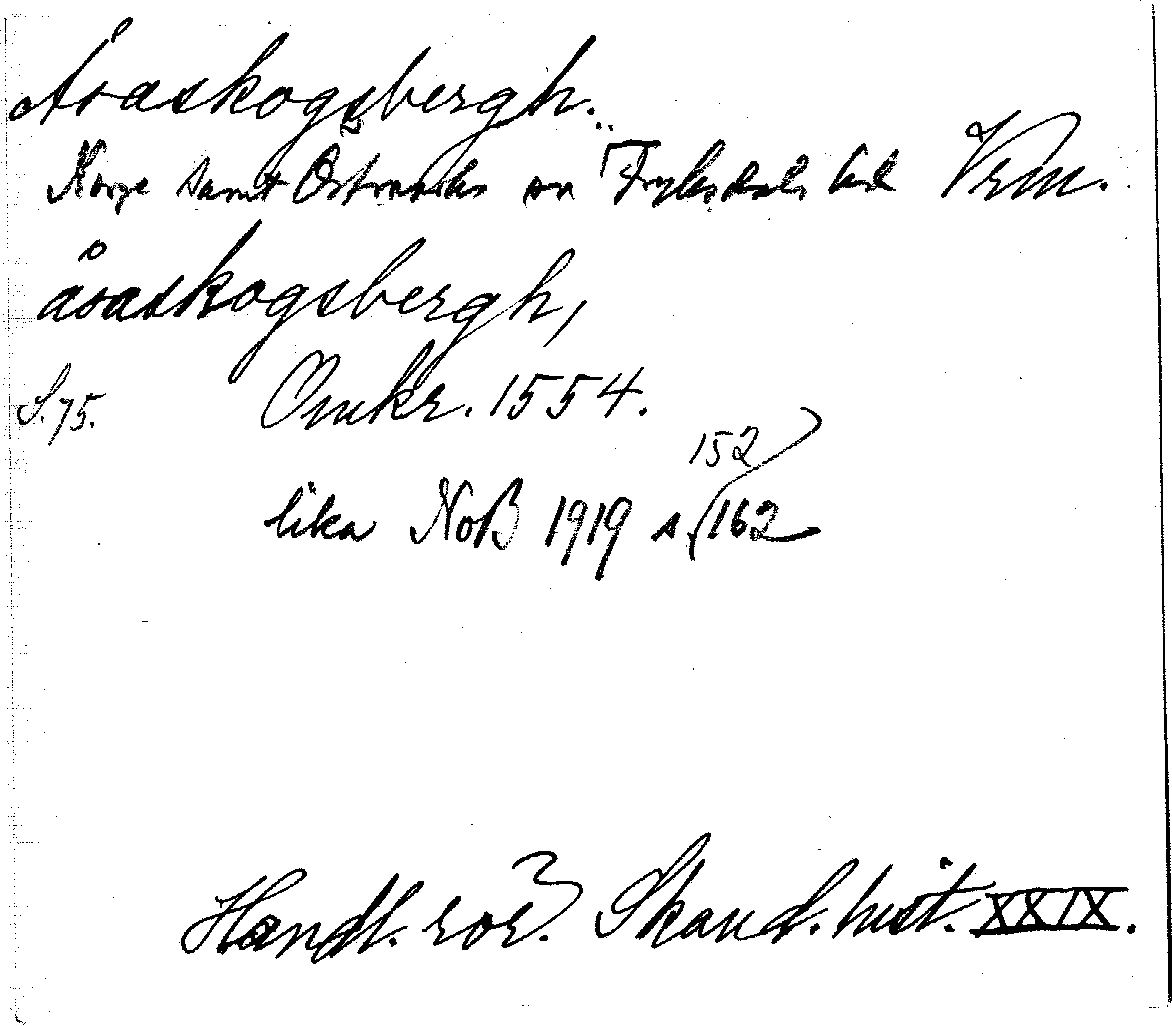 Åsaskogsbergh.
Norge samt Östmarks sn Fryksdals hd Vrm.
åsaskogsbergh,
S. 75. Omkr. 1554.
152
lika NoB 1919 s. 162
Handl. rör. Skand. hist. XXIX.